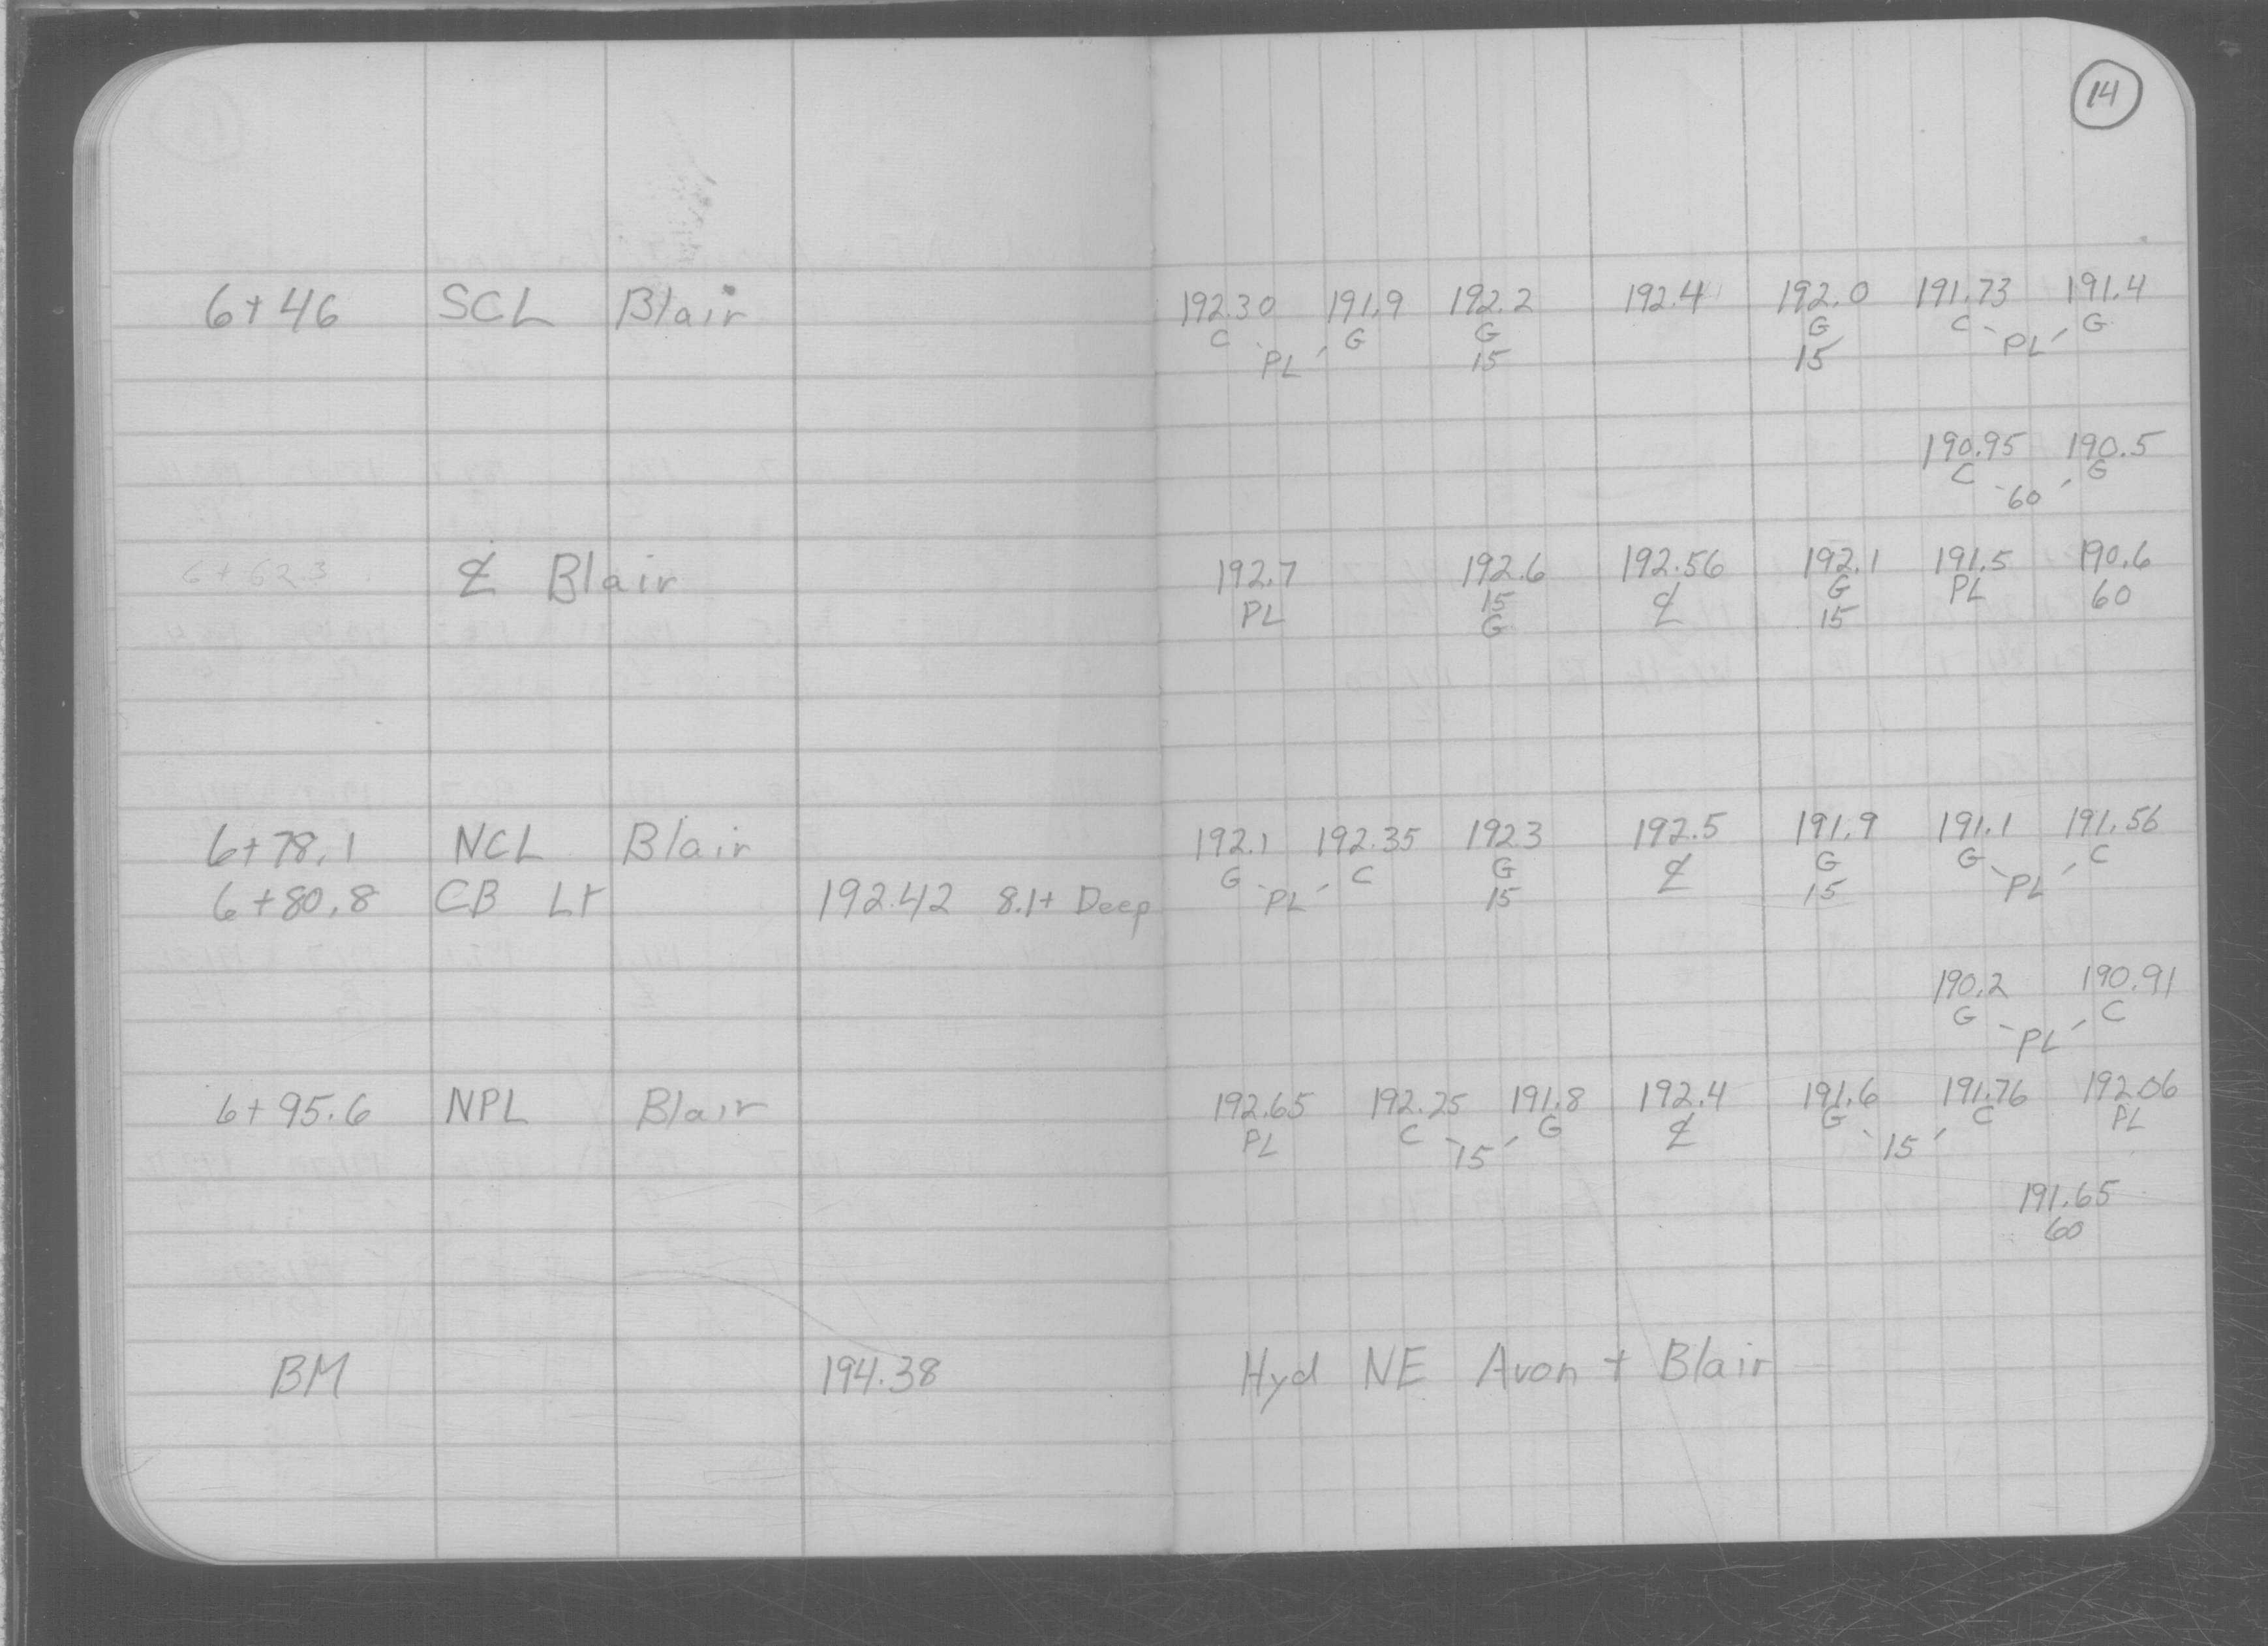 14
6+46 SCL Blair 192.30 191.9 192.2 192.4 192.0 191.73 191.4
C G G G C G
PL 15 15 PL
190.95 190.5
C G
60
6+62.3 ℄ Blair 192.7 192.6 192.56 192.1 191.5 190.6
PL 15 ℄ G PL 60
G 15
6+78.1 NCL Blair 192.1 192.35 192.3 192.5 191.9 191.1 191.56
G C G ℄ G G C
6+80.8 CB Lt 192.42 8.1+ Deep PL 15 15 PL
190.2 190.91
G C
PL
6+95.6 NPL Blair 192.65 192.25 191.8 192.4 191.6 191.76 192.06
PL C G ℄ G C PL
15 15
191.65
60
BM 194.38 Hyd NE Avon + Blair